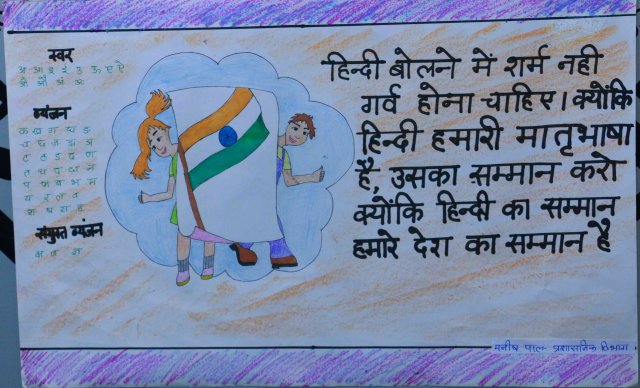 स्वर
अ आ इ ई उ ऊ ए ऐ
ओ औ अं अः
व्यंजन
क ख ग घ ङ
च छ ज झ ञ
ट ठ ड ढ ण
त थ द ध न
प फ ब भ म
य र ल व
श ष स ह
संयुक्त व्यंजन
क्ष त्र ज्ञ
हिन्दी बोलने में शर्म नही
गर्व होना चाहिए। क्योंकि
हिन्दी हमारी मातृभाषा
है, उसका सम्मान करो
क्योंकि हिन्दी का सम्मान
हमारे देश का सम्मान है
मनीष पाल प्रशासनिक विभाग